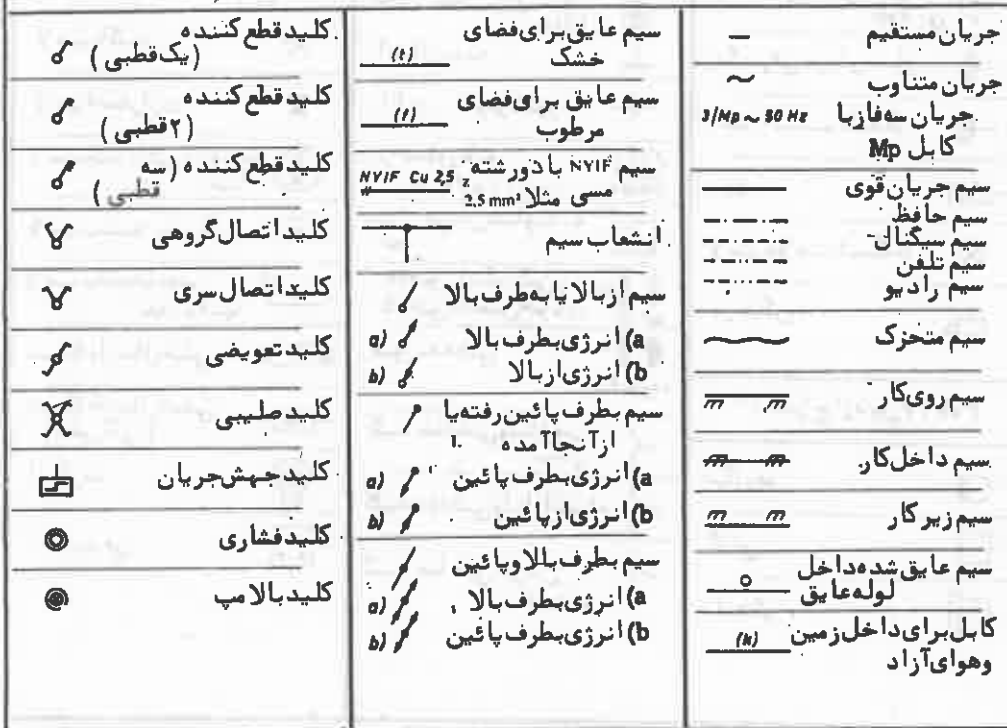 جریان مستقیم
جریان متناوب
جریان سه‌فاز با 3/Mp ~ 50 Hz
کابل Mp
سیم جریان قوی
سیم حافظ
سیم سیگنال-
سیم تلفن
سیم رادیو
سیم متحرک
سیم روی کار
سیم داخل کار
سیم زیر کار
سیم عایق شده داخل
لوله عایق
کابل برای داخل زمین (k)
و هوای آزاد
سیم عایق برای فضای
خشک (t)
سیم عایق برای فضای
مرطوب (f)
سیم NYIF با دورشته NYIF Cu 2,5
مسی مثلا 2.5 mm²
انشعاب سیم
سیم از بالا یا به طرف بالا
a) انرژی بطرف بالا a)
b) انرژی از بالا b)
سیم بطرف پائین رفته یا
از آنجا آمده
a) انرژی بطرف پائین a)
b) انرژی از پائین b)
سیم بطرف بالا و پائین
a) انرژی بطرف بالا a)
b) انرژی بطرف پائین b)
کلید قطع کننده
(یک قطبی)
کلید قطع کننده
(۲ قطبی)
کلید قطع کننده (سه
قطبی)
کلید اتصال گروهی
کلید اتصال سری
کلید تعویضی
کلید صلیبی
کلید جهش جریان
کلید فشاری
کلید بالامپ